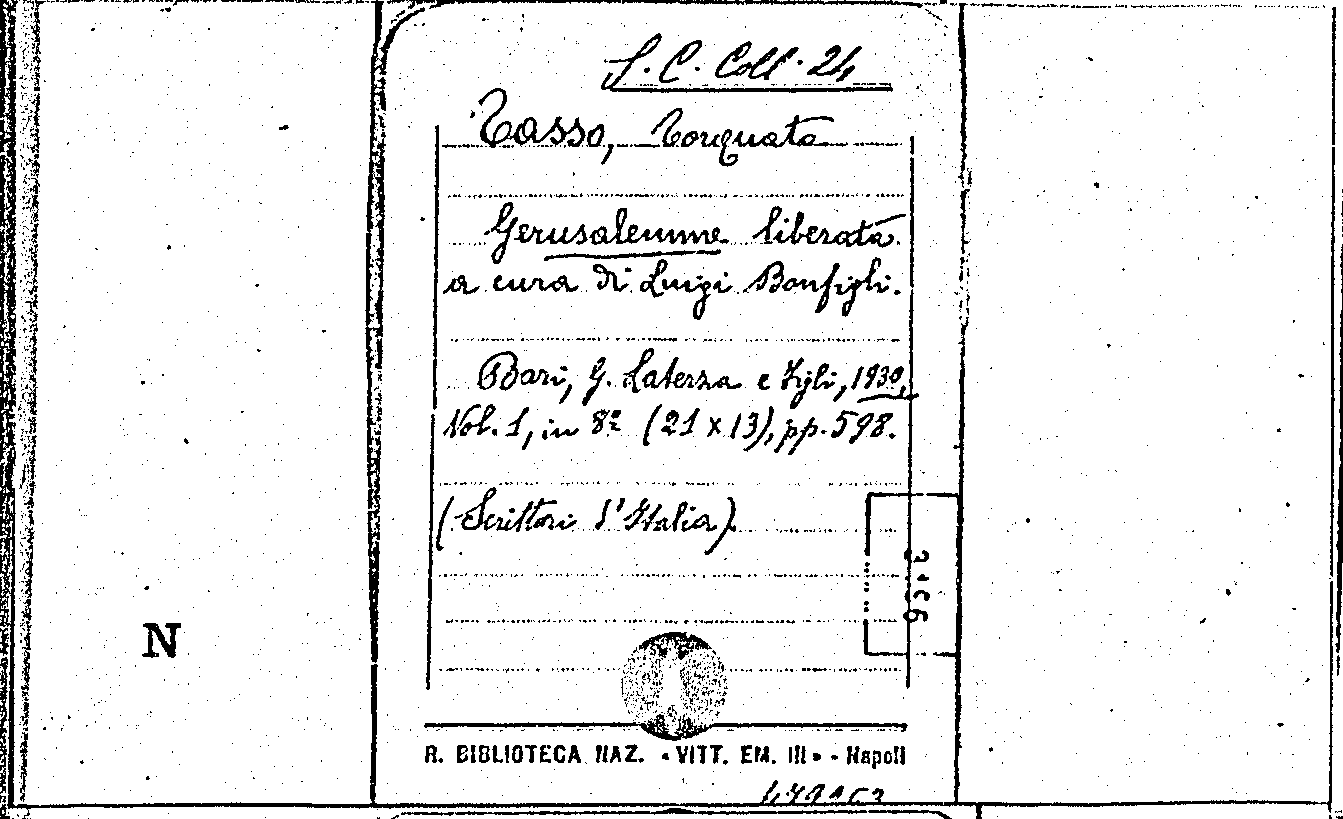 S. C. Coll. 24
Tasso, Torquato
Gerusalemme liberata
a cura di Luigi Bonfigli.
Bari, G. Laterza e Figli, 1930,
Vol. 1, in 8º (21 x 13), pp. 598.
(Scrittori d'Italia)
N
R. BIBLIOTECA NAZ. «VITT. EM. III» - Napoli